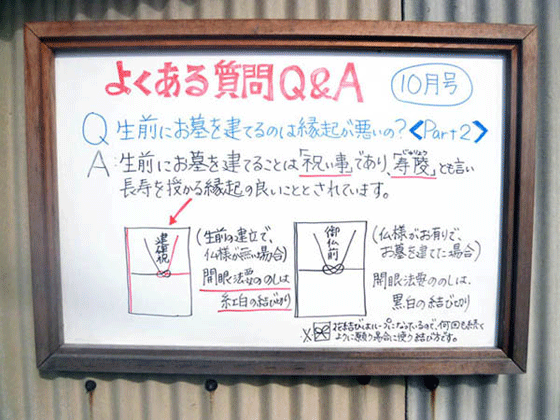 よくある質問Q&A
10月号
Q 生前にお墓を建てるのは縁起が悪いの?<Part2>
A:生前にお墓を建てることは「祝い事」であり、「寿陵」とも言い
じゅりょう
長寿を授かる縁起の良いこととされています。
建碑祝
(生前の建立で、
仏様が無い場合)
開眼法要ののしは
紅白の結び切り
御仏前
(仏様がお有りで、
お墓を建てた場合)
開眼法要ののしは、
黒白の結び切り
※花結びはループになっているので、何回も続く
ように願う場合に使う結び方です。